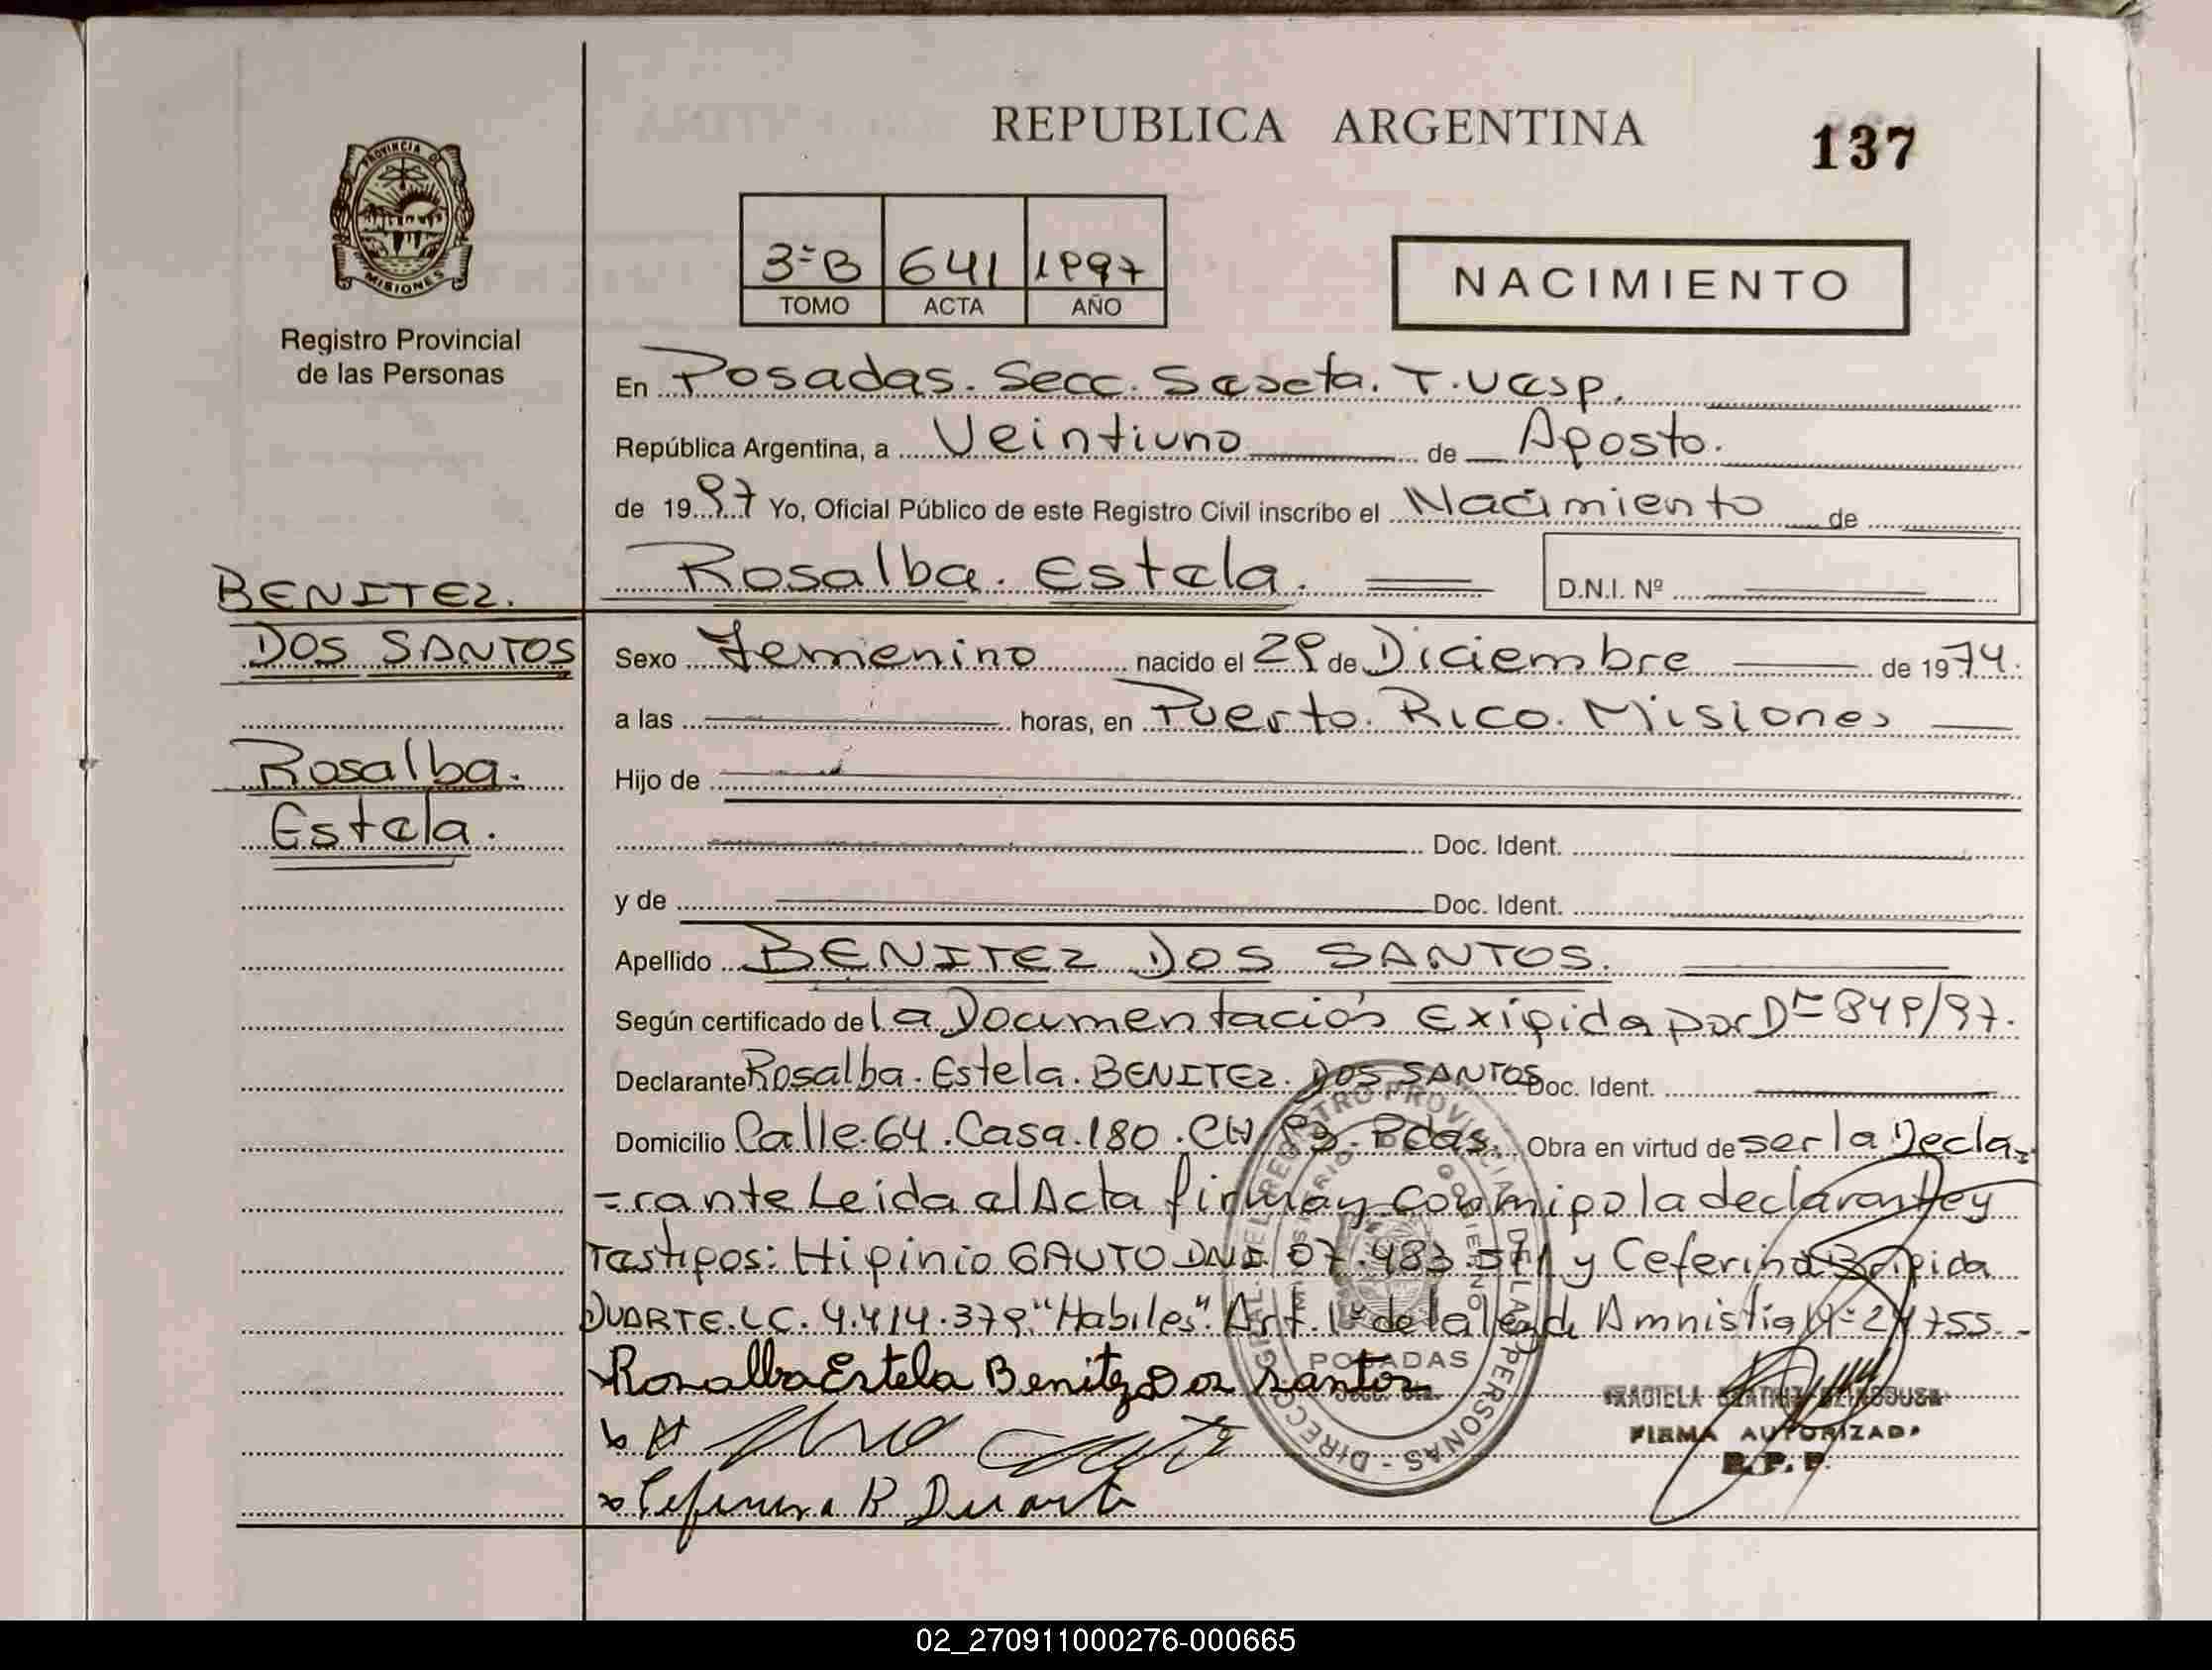 REPUBLICA ARGENTINA
137
PROVINCIA DE
MISIONES
Registro Provincial
de las Personas
3º B 641 1997
TOMO ACTA AÑO
NACIMIENTO
En Posadas. Secc. Sexta. T. Vesp.
República Argentina, a Veintiuno de Agosto.
de 1997 Yo, Oficial Público de este Registro Civil inscribo el Nacimiento de
Rosalba. Estela.
D.N.I. Nº
BENITEZ.
DOS SANTOS
Rosalba.
Estela.
Sexo Femenino nacido el 29 de Diciembre de 1974.
a las horas, en Puerto. Rico. Misiones
Hijo de
Doc. Ident.
y de Doc. Ident.
Apellido BENITEZ DOS SANTOS.
Según certificado de la Documentación Exigida por Dto 849/97.
Declarante Rosalba. Estela. BENITEZ. DOS SANTOS Doc. Ident.
Domicilio Calle. 64. Casa. 180. CH. Pdas. Obra en virtud de ser la Decla=
=rante Leida el Acta firman conmigo la declarante y
Testigos: Higinio GAUTO DNI. 07.483.571 y Ceferina Brigida
DUARTE. LC. 4.414.379. "Habiles". Art. 1º de la ley de Amnistía Nº 24755.-
Rosalba Estela Benitez Dos Santos
Ceferina B Duarte
DIRECCION GRAL DEL REGISTRO PROVINCIAL DE LAS PERSONAS
MINISTERIO GOBIERNO
POSADAS
FIRMA AUTORIZADA
R.P.P.
02_270911000276-000665